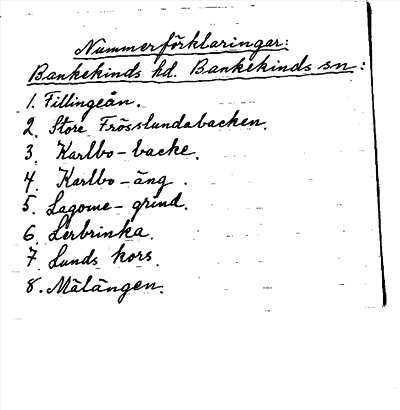 Nummerförklaringar:
Bankekinds hd. Bankekinds sn:
1. Fillingeån.
2. Store Frösslundabacken.
3. Karlbo-backe.
4. Karlbo-äng.
5. Lagome-grind.
6. Lerbrinka.
7. Lunds kors.
8. Mälängen.